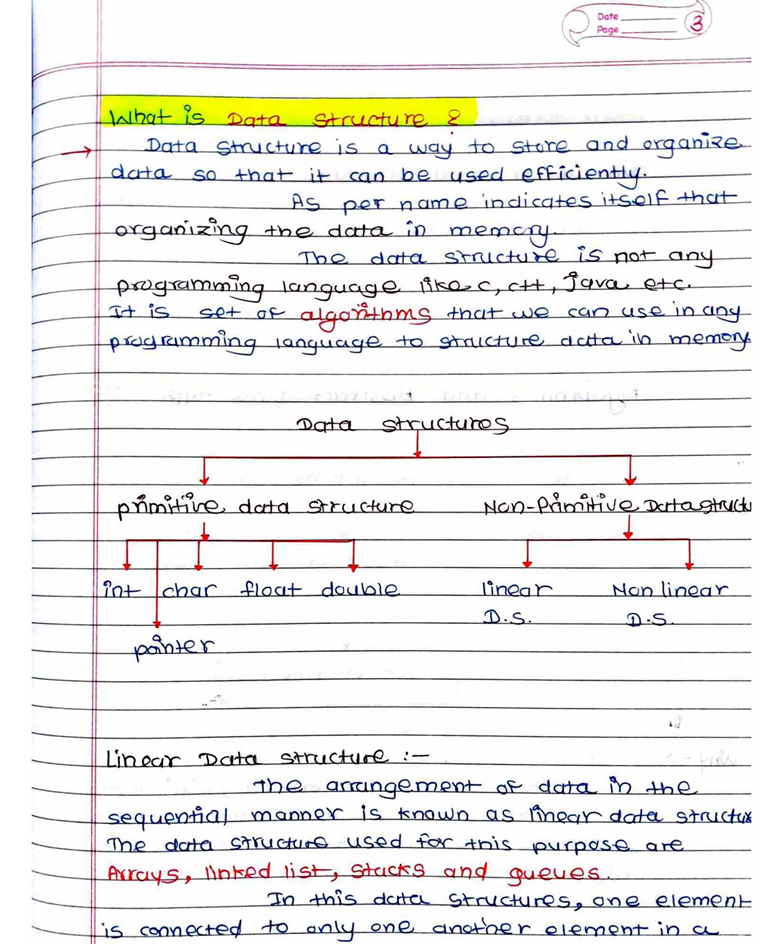 Date
Page
3
What is Data structure ?
Data structure is a way to store and organize
data so that it can be used efficiently.
As per name indicates itself that
organizing the data in memory.
The data structure is not any
programming language like c, c++, Java etc.
It is set of algorithms that we can use in any
programming language to structure data in memory
Data structures
primitive data structure Non-Primitive Datastructu
int char float double linear Non linear
D.S. D.S.
pointer
Linear Data structure :-
The arrangement of data in the
sequential manner is known as linear data structu
The data structure used for this purpose are
Arrays, linked list, stacks and queues.
In this data structures, one element
is connected to only one another element in a